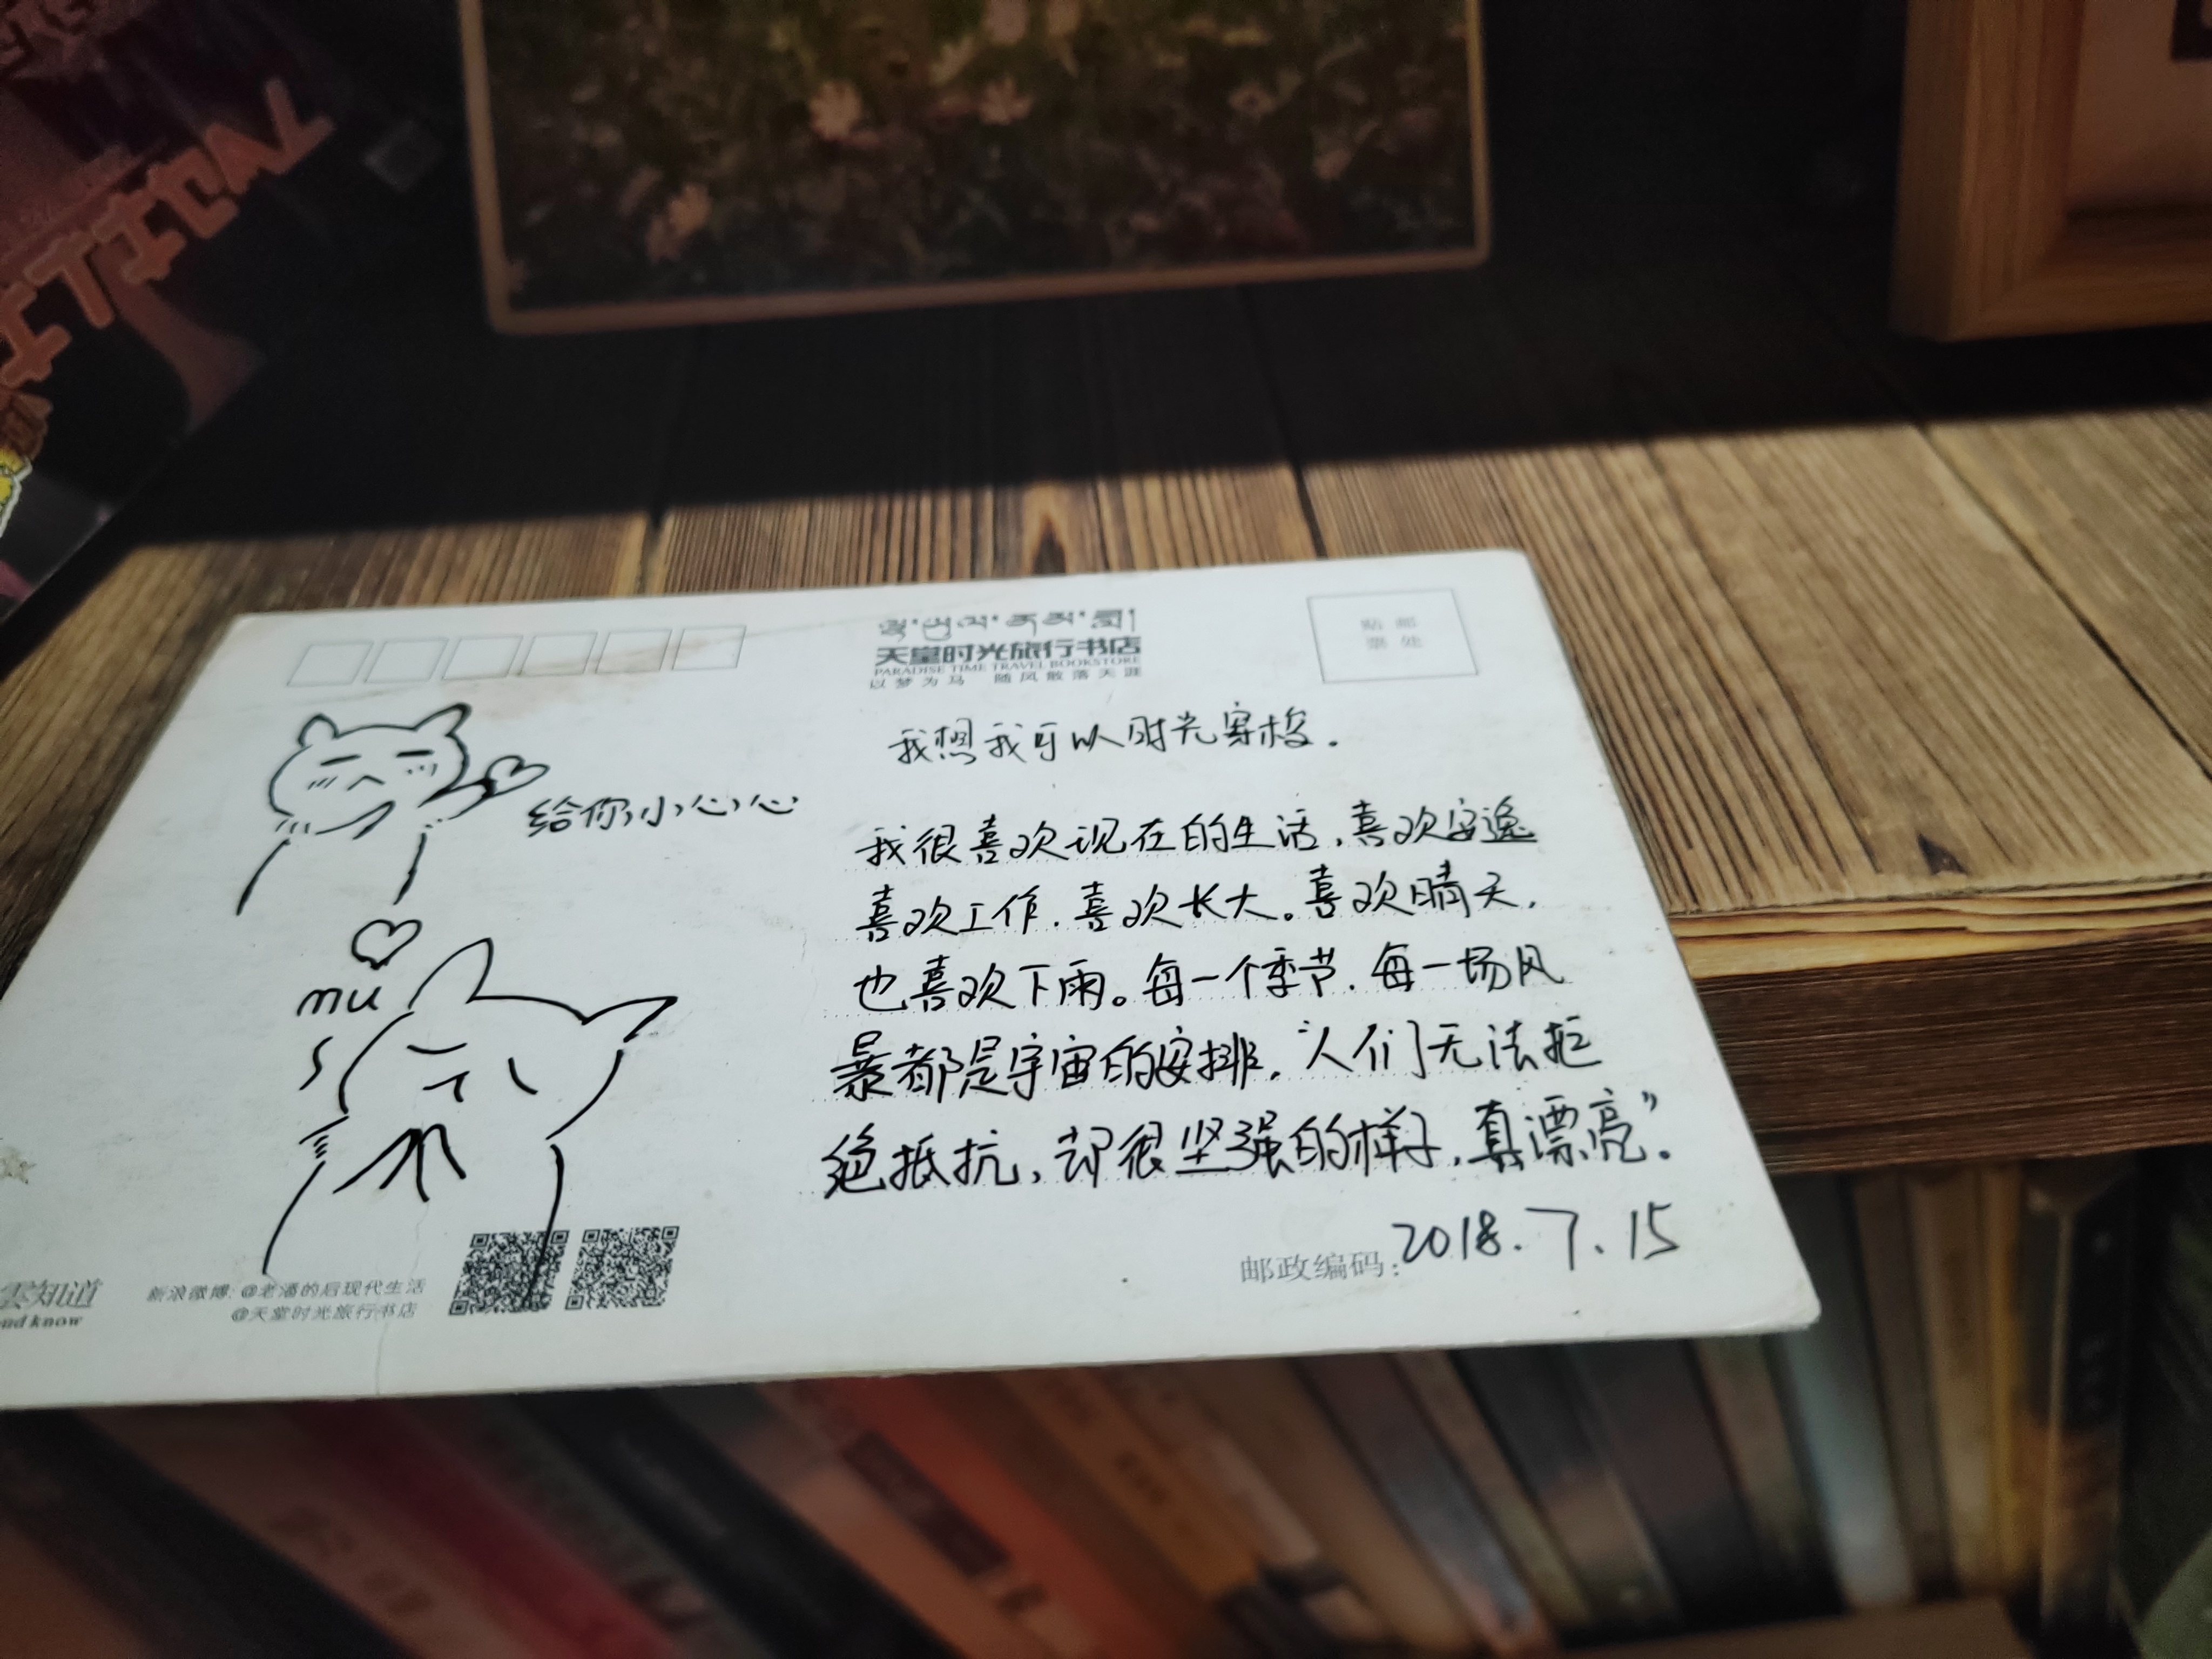 天堂时光旅行书店
PARADISE TIME TRAVEL BOOKSTORE
以梦为马 随风散落天涯
贴 邮
票 处
给你小心心
mu
我想我可以时光穿梭.
我很喜欢现在的生活,喜欢安逸
喜欢工作.喜欢长大。喜欢晴天,
也喜欢下雨。每一个季节.每一场风
暴都是宇宙的安排,“人们无法拒
绝抵抗,却很坚强的样子,真漂亮”。
邮政编码:2018.7.15
雲知道
nd know
新浪微博:@老潘的后现代生活
@天堂时光旅行书店